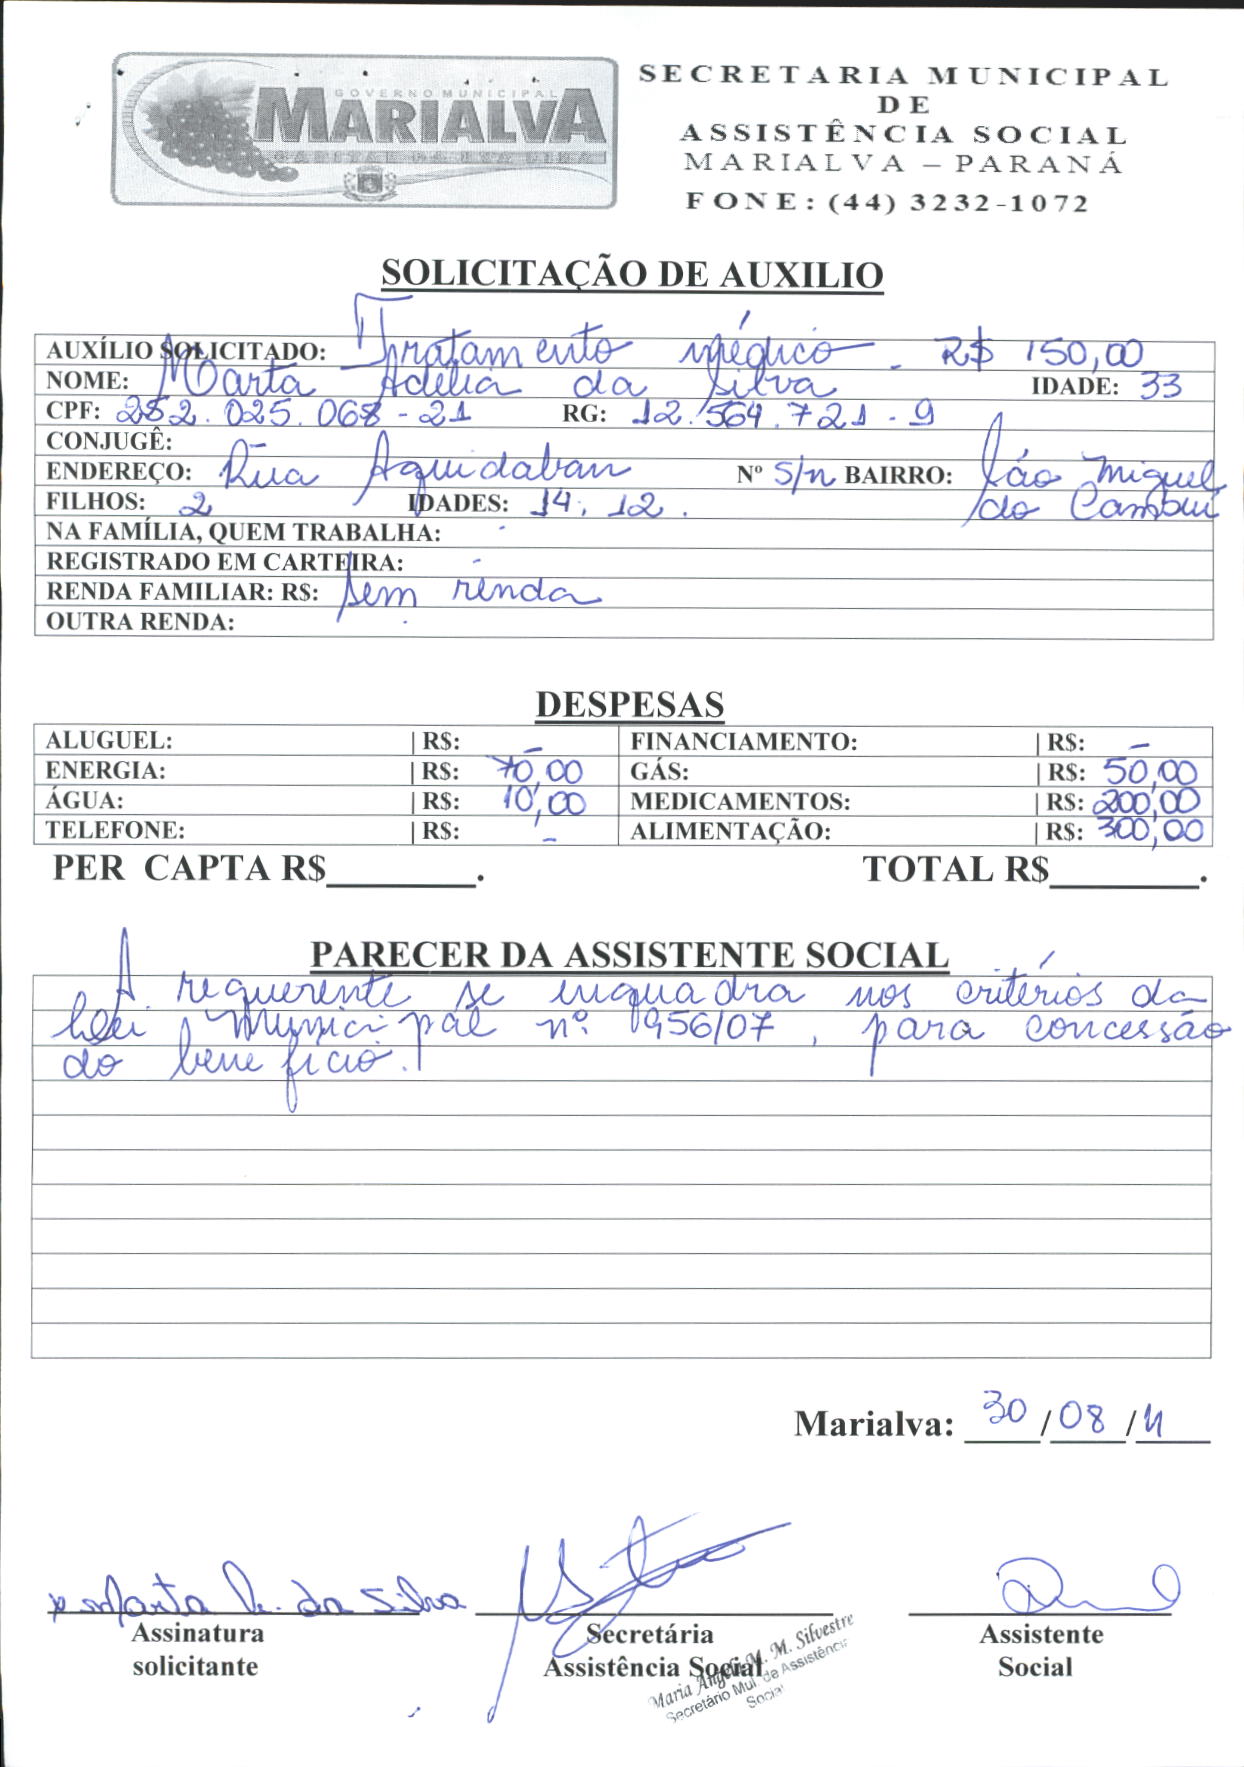 GOVERNO MUNICIPAL
MARIALVA
CAPITAL DA UVA FINA
SECRETARIA MUNICIPAL
DE
ASSISTÊNCIA SOCIAL
MARIALVA – PARANÁ
FONE: (44) 3232-1072
SOLICITAÇÃO DE AUXILIO
AUXÍLIO SOLICITADO: Tratamento médico - R$ 150,00
NOME: Marta Adélia da Silva IDADE: 33
CPF: 252.025.068-21 RG: 12.564.721-9
CONJUGÊ: -
ENDEREÇO: Rua Aquidaban Nº S/n BAIRRO: São Miguel
do Cambuí
FILHOS: 2 IDADES: 14; 12.
NA FAMÍLIA, QUEM TRABALHA: -
REGISTRADO EM CARTEIRA: -
RENDA FAMILIAR: R$: Sem renda
OUTRA RENDA: -
DESPESAS
ALUGUEL: | R$: - FINANCIAMENTO: | R$: -
ENERGIA: | R$: 70,00 GÁS: | R$: 50,00
ÁGUA: | R$: 10,00 MEDICAMENTOS: | R$: 200,00
TELEFONE: | R$: - ALIMENTAÇÃO: | R$: 300,00
PER CAPTA R$________. TOTAL R$________.
PARECER DA ASSISTENTE SOCIAL
A requerente se enquadra nos critérios da
Lei Municipal nº 956/07, para concessão
do benefício.
Marialva: 30/08/11
x Marta A. da Silva
Assinatura Secretária Assistente
solicitante Assistência Social Social
Maria Angela M. M. Silvestre
Secretário Mul. de Assistência
Social